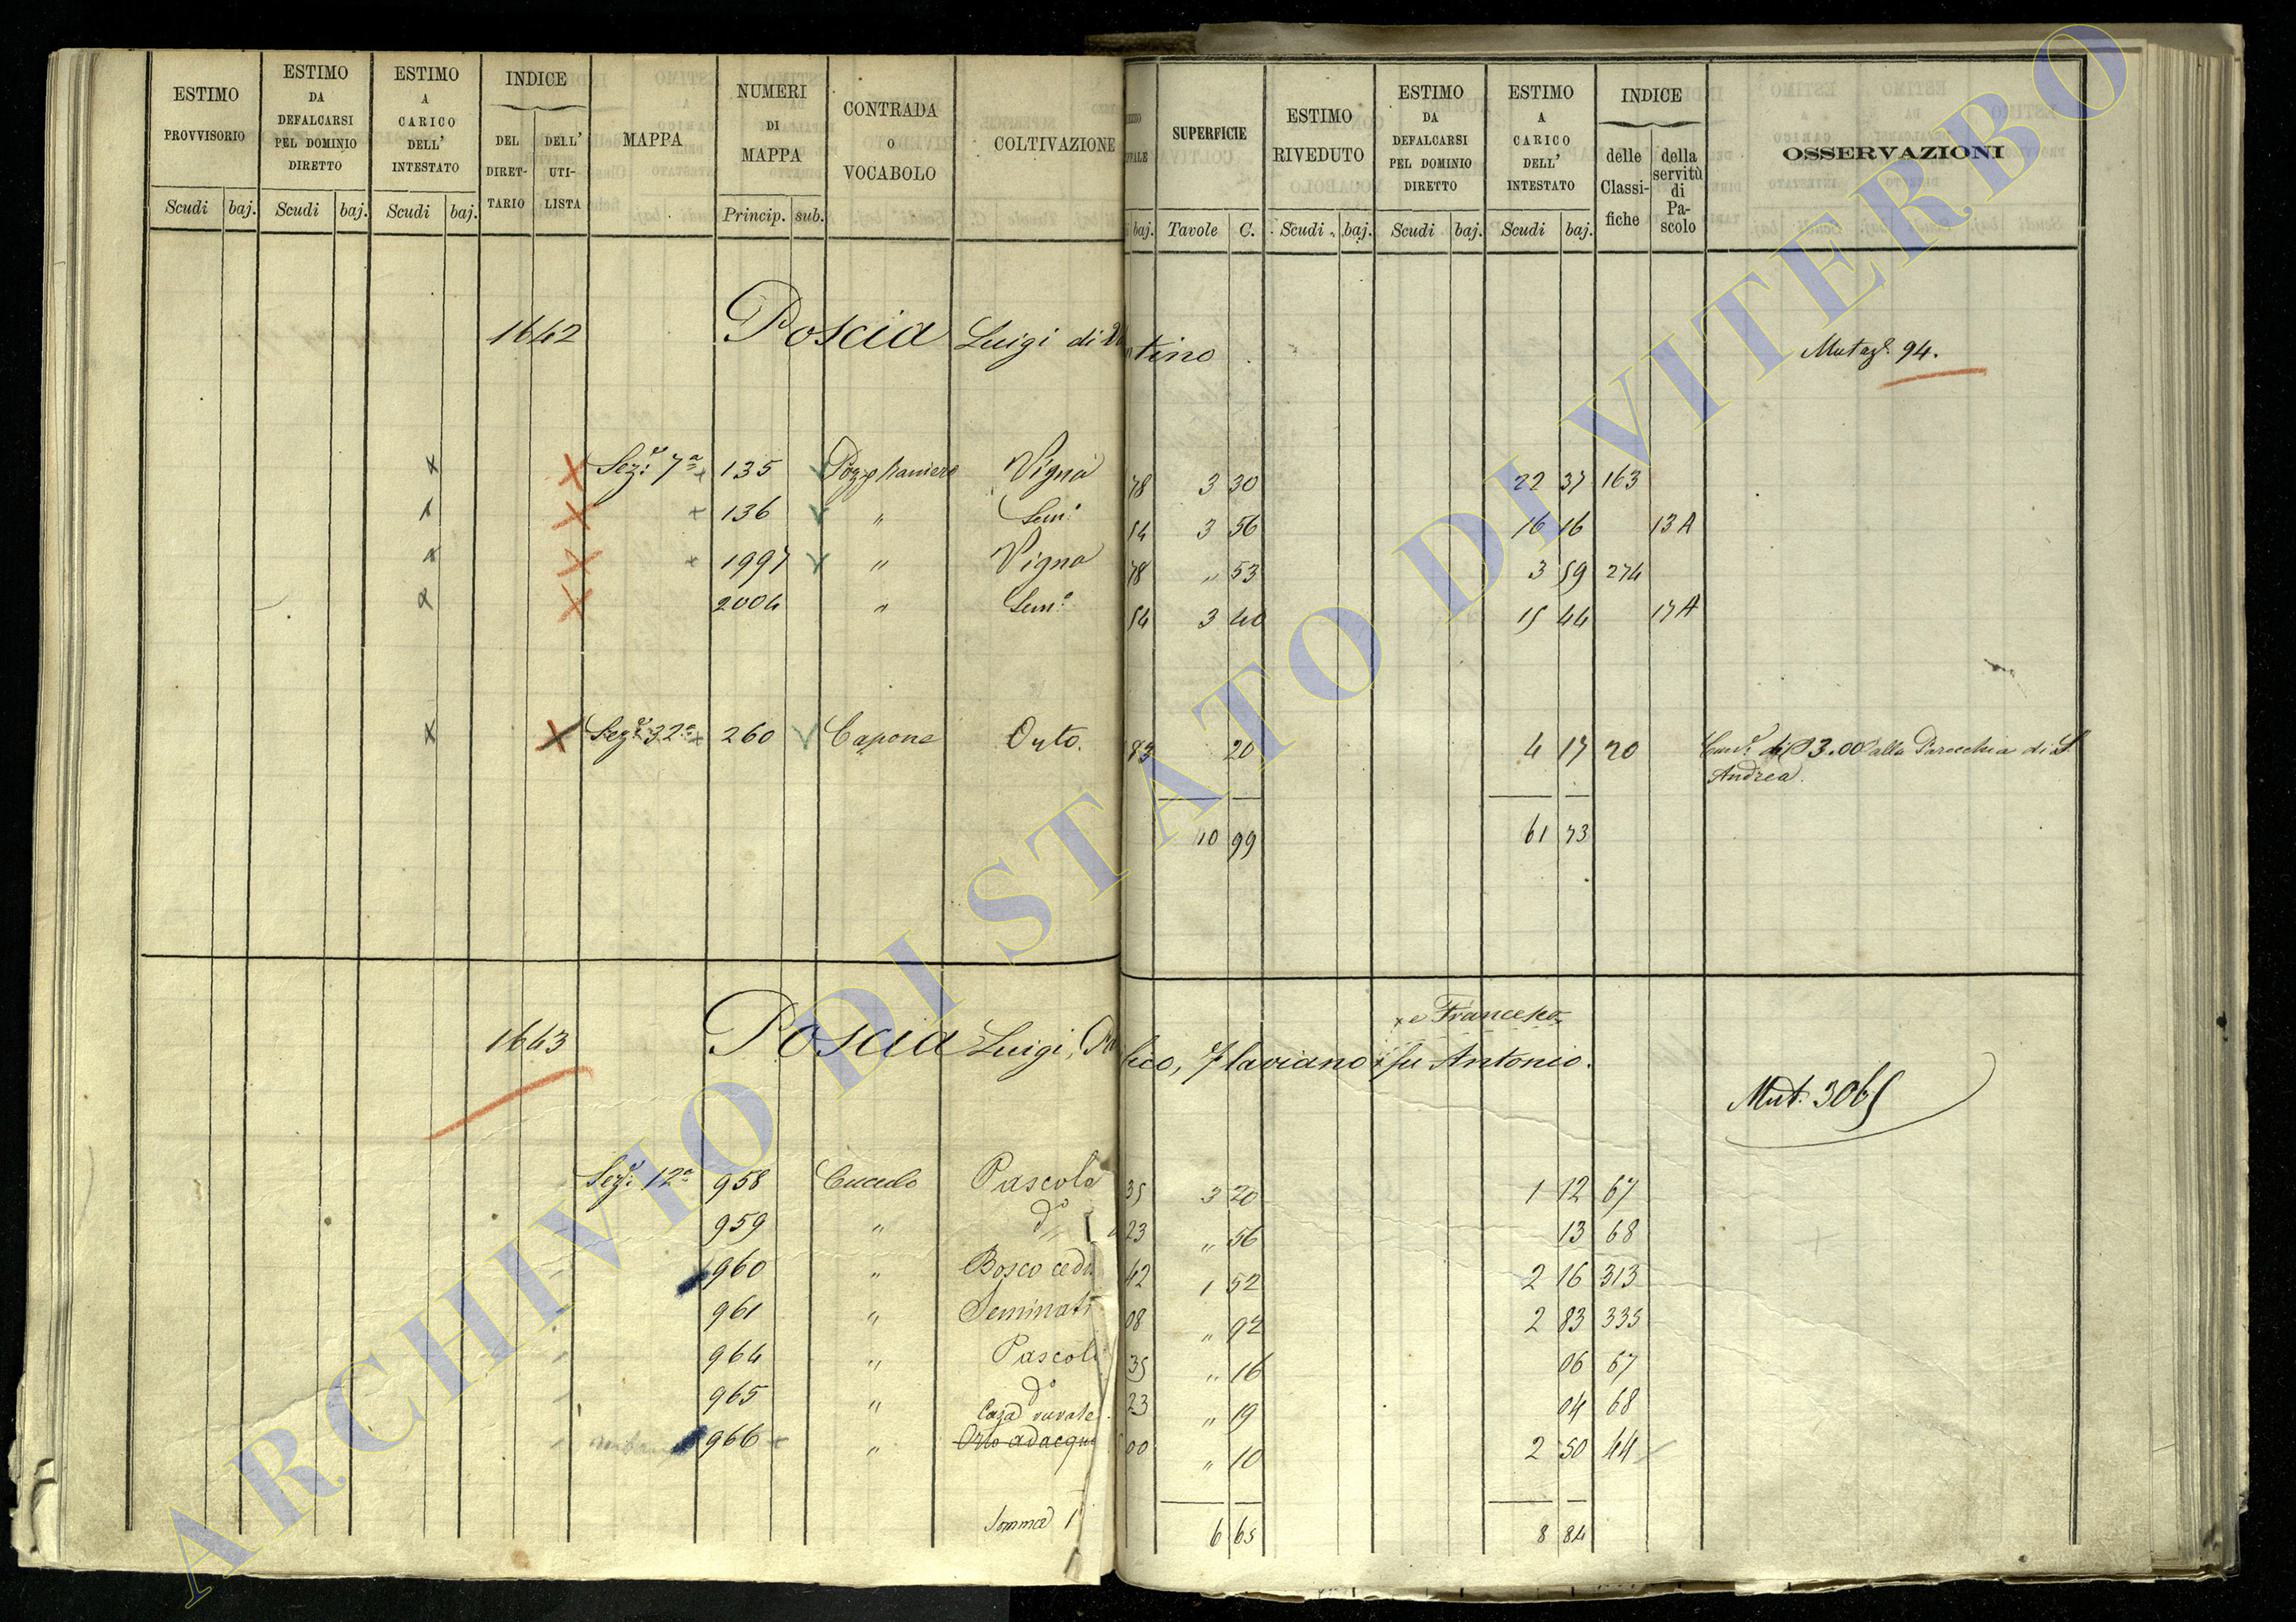 ESTIMO PROVVISORIO
ESTIMO DA DEFALCARSI PEL DOMINIO DIRETTO
ESTIMO A CARICO DELL' INTESTATO
INDICE
DEL DIRET- TARIO
DELL' UTI- LISTA
MAPPA
NUMERI DI MAPPA
CONTRADA O VOCABOLO
COLTIVAZIONE
SUPERFICIE
ESTIMO RIVEDUTO
ESTIMO DA DEFALCARSI PEL DOMINIO DIRETTO
ESTIMO A CARICO DELL' INTESTATO
INDICE
delle Classi- fiche
della servitù di Pa- scolo
OSSERVAZIONI
Scudi baj. Scudi baj. Scudi baj. Princip. sub. baj. Tavole C. Scudi baj. Scudi baj. Scudi baj.
1642 Poscia Luigi di tino Mutaz. 94.
Sez. 7a 135 Vigna 78 3 30 22 37 163
136 " Sem.o 54 3 56 16 16 13 A
1997 " Vigna 78 " 53 3 59 274
2004 " Sem.o 54 3 40 15 44 17 A
Sez. 32a 260 Capone Orto. 83 20 4 17 20 di 3.00 alla Parocchia di S.
Andrea.
10 99 61 73
x e Francesco
1643 Poscia Luigi, fu Antonio.
Flaviano
Mut. 3065
Sez. 12a 958 Cuculo Pascolo 35 3 20 1 12 67
959 " do 23 " 56 13 68
960 " Bosco cedu 42 1 52 2 16 313
961 " Seminati 08 " 92 2 83 335
964 " Pascolo 35 " 16 06 67
965 " do 23 " 19 04 68
Casa rurale
966 " Orto adacqua 00 " 10 2 50 44
Somma 6 65 8 84
ARCHIVIO DI STATO DI VITERBO